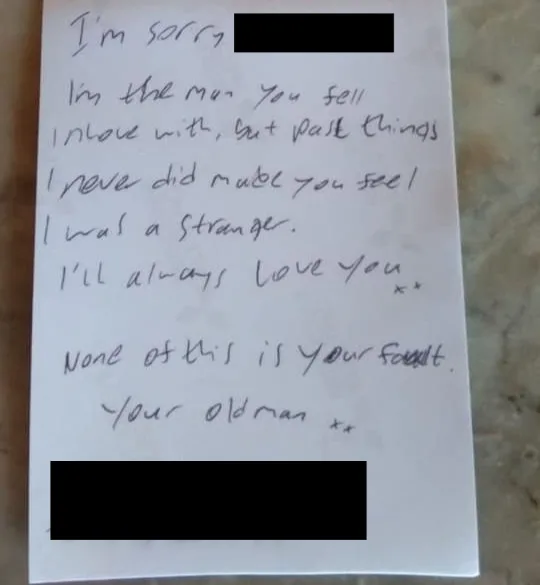 I'm sorry
I'm the man you fell
inlove with, but past things
I never did make you feel
I was a stranger.
I'll always love you xx
None of this is your fault.
Your old man xx